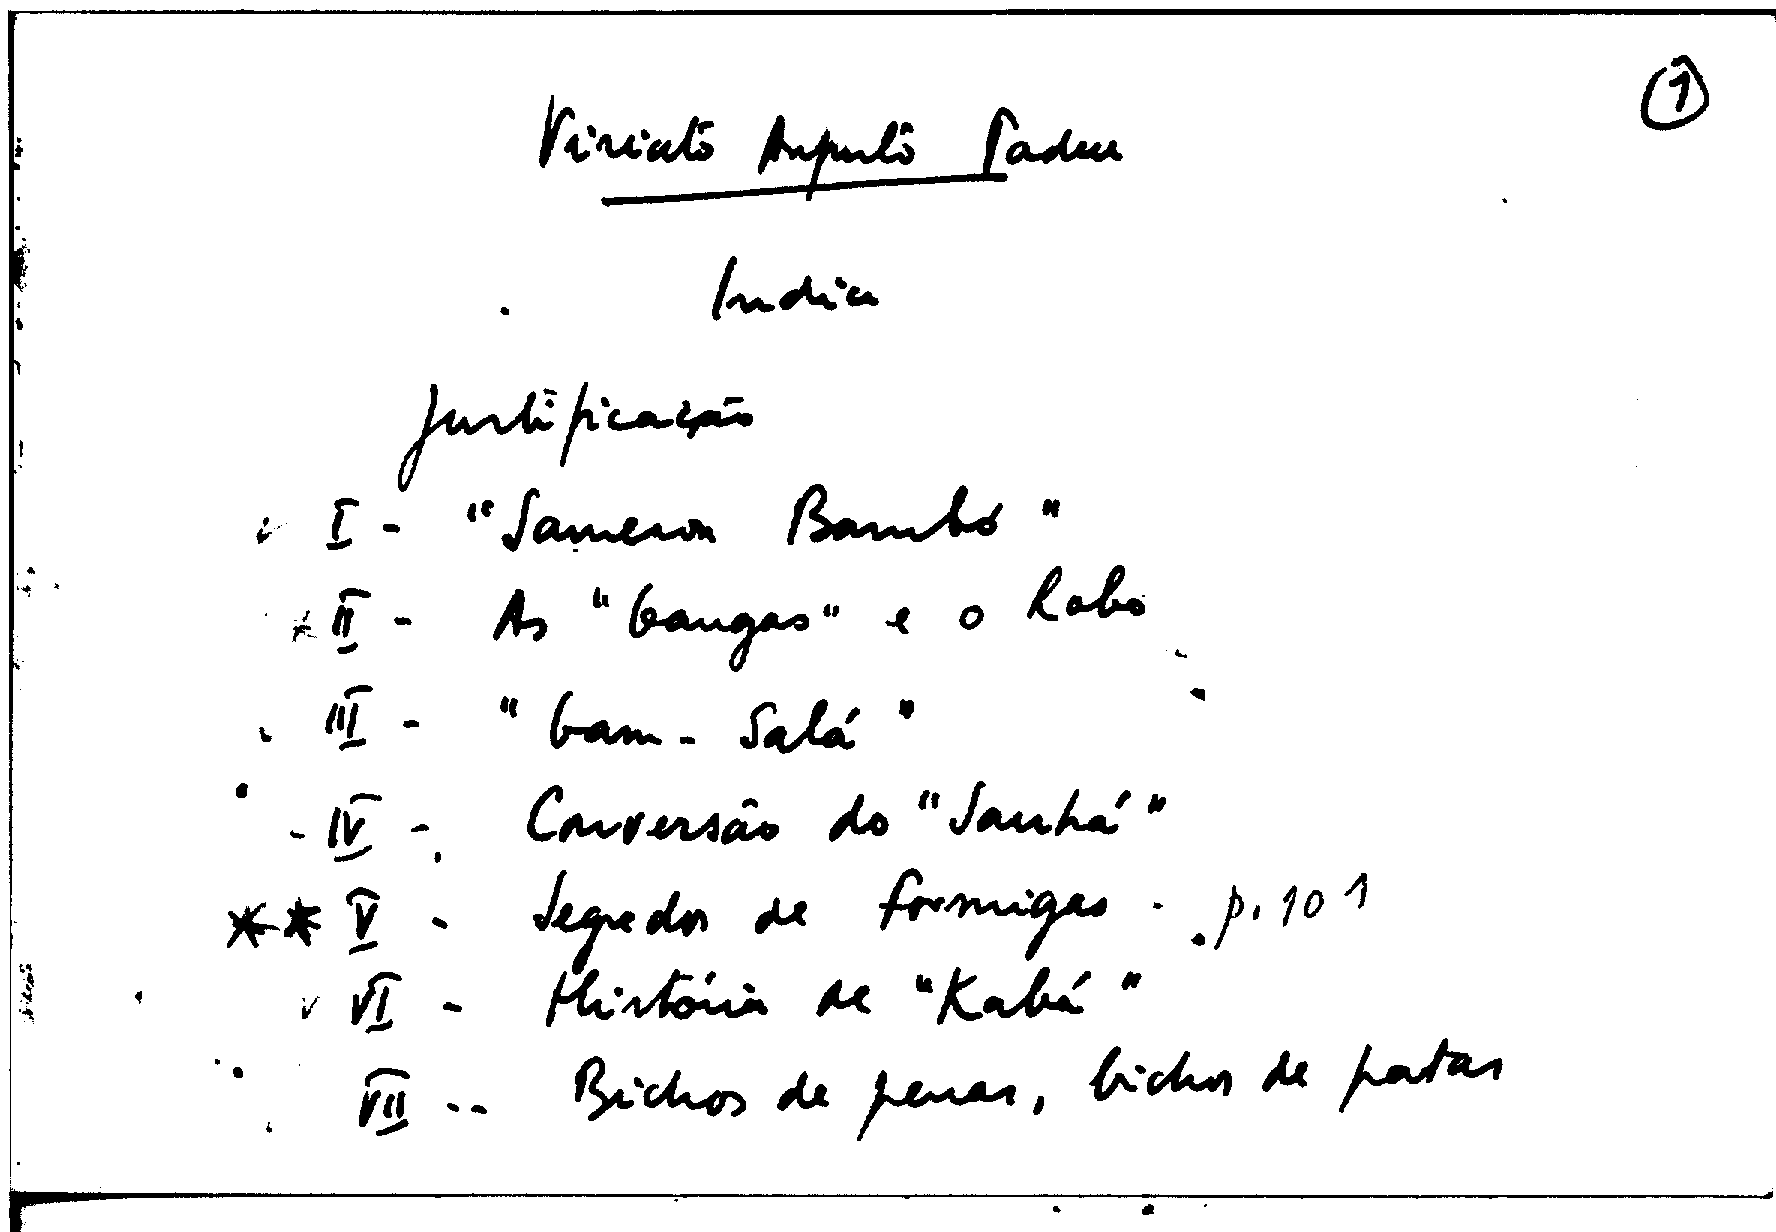 ①
Viriato Augusto Tadeu
Indice
Justificação
I - "Sameron Bambó"
II - As "Gangas" e o Lobo
III - "Gam-Salá"
IV - Conversão do "Sanhá"
** V - Segredos de formigas - p. 101
VI - História de "Kabá"
VII - Bichos de penas, bichos de patas